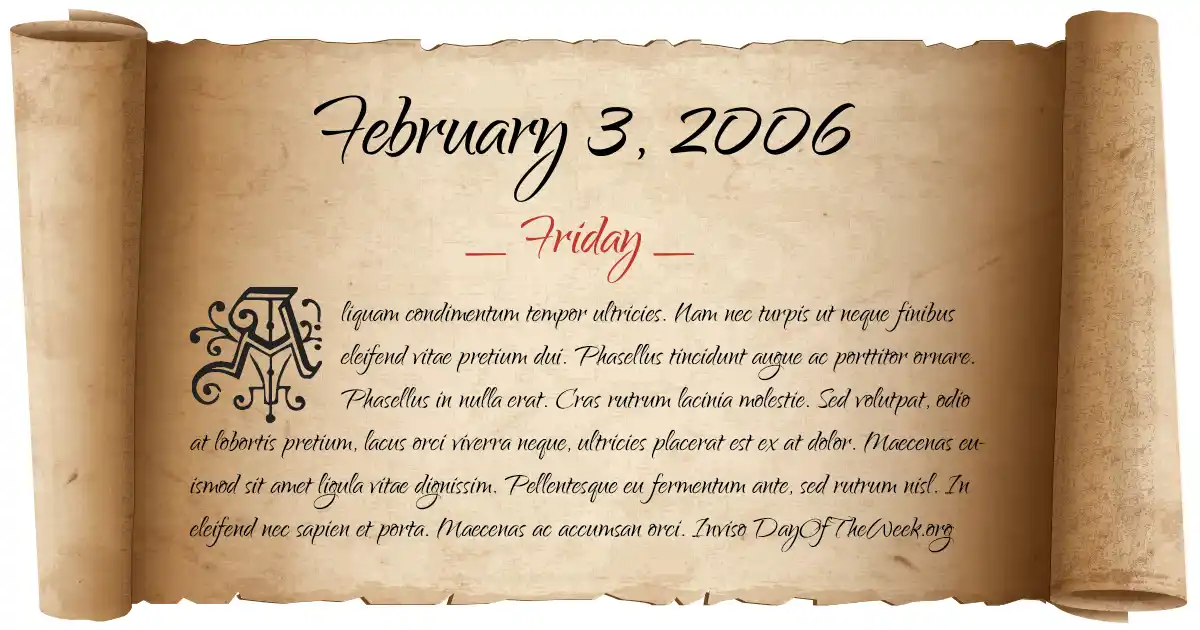 February 3, 2006
_ Friday _
Aliquam condimentum tempor ultricies. Nam nec turpis ut neque finibus
eleifend vitae pretium dui. Phasellus tincidunt augue ac porttitor ornare.
Phasellus in nulla erat. Cras rutrum lacinia molestie. Sed volutpat, odio
at lobortis pretium, lacus orci viverra neque, ultricies placerat est ex at dolor. Maecenas eu-
ismod sit amet ligula vitae dignissim. Pellentesque eu fermentum ante, sed rutrum nisl. In
eleifend nec sapien et porta. Maecenas ac accumsan orci. Inviso DayOfTheWeek.org